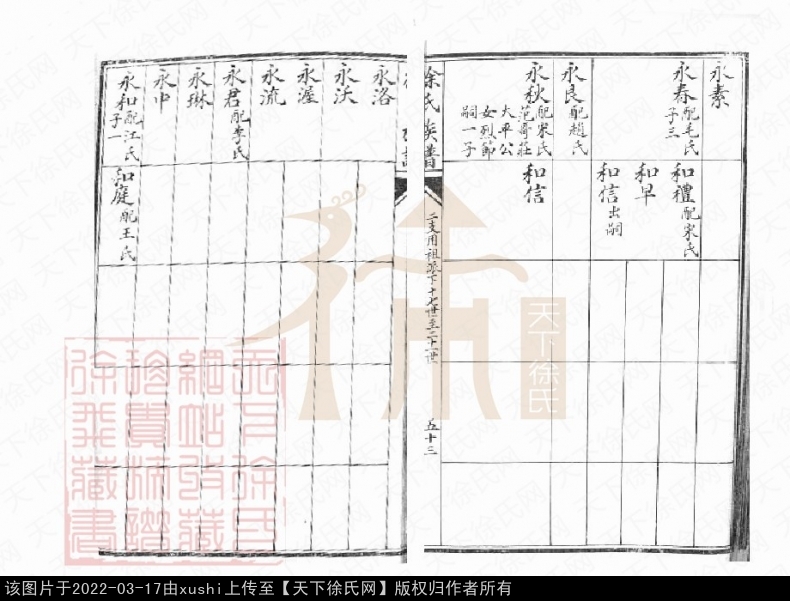 永素
永春配毛氏
子三
永良配趙氏
永秋配宋氏
范哥莊
大平公
女烈節
嗣一子
和禮配宋氏
和早
和信出嗣
和信
徐氏族譜
二支用祖派下十七世至二十一世
五十三
永洛
永沃
永渥
永流
永君配李氏
永琳
永中
永和配江氏
子一
和庭配王氏
天下徐氏
该图片于2022-03-17由xushi上传至【天下徐氏网】版权归作者所有